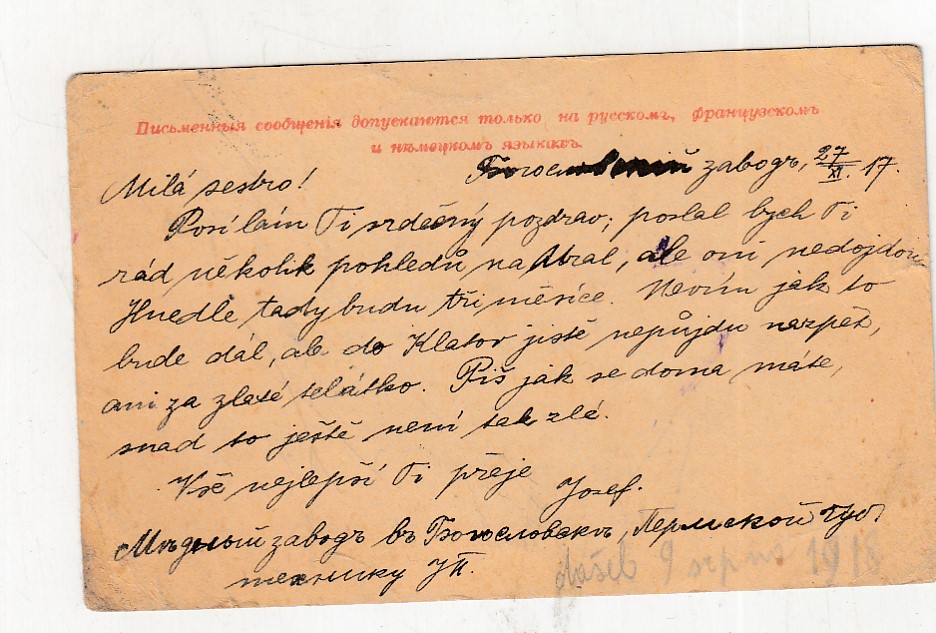 Письменныя сообщенія допускаются только на русскомъ, французскомъ
и нѣмецкомъ языкахъ.
Богословскій заводъ, 27/XI. 17.
Milá sestro!
Posílám Ti srdečný pozdrav; poslal bych Ti
rád několik pohledů na Ural, ale oni nedojdou
Hnedle tady budu tři měsíce. Nevím jak to
bude dál, ale do Klatov jistě nepůjdu nazpět,
ani za zlaté telátko. Piš jak se doma máte,
snad to ještě není tak zlé.
Vše nejlepší Ti přeje
Josef.
Мѣдный заводъ въ Богословскѣ, Пермской губ.
технику
došel 9 srpna 1918